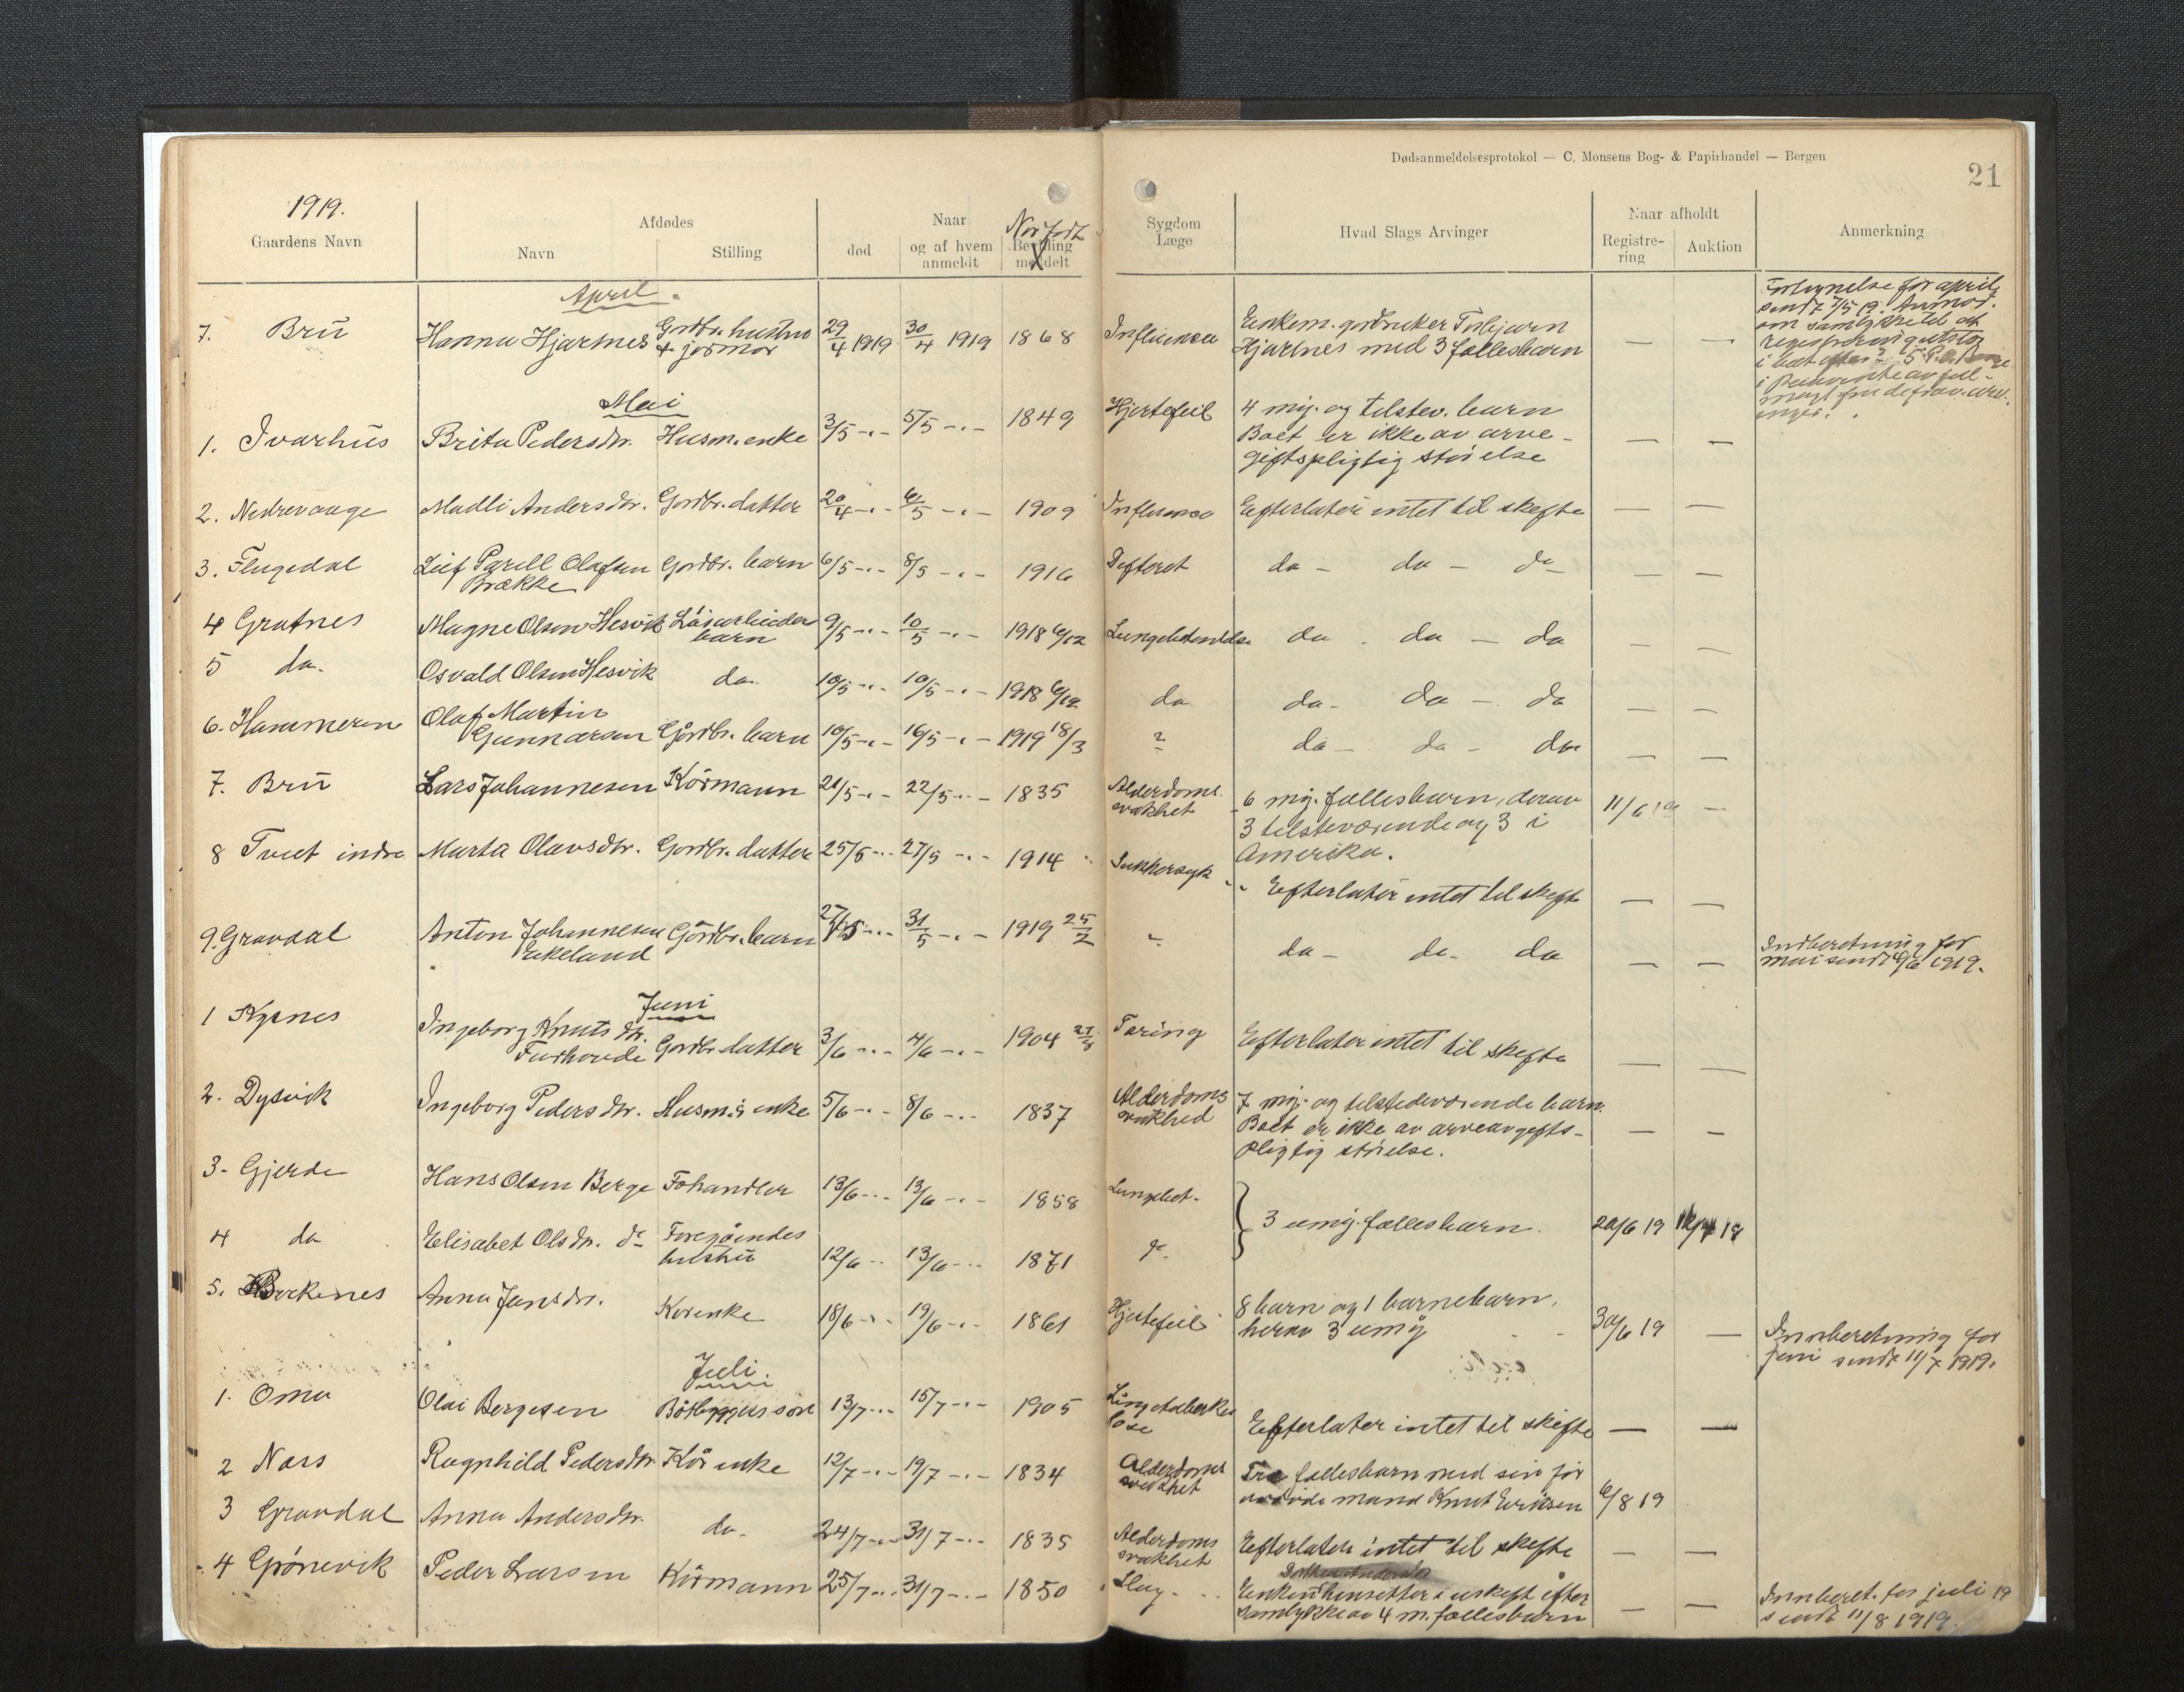 Dødsanmeldelsesprotokol — C. Monsens Bog- & Papirhandel — Bergen
21
1919.
Gaardens Navn
Afdødes
Navn
Stilling
død
Naar
og af hvem
anmeldt
Når født
Bevilling
meddelt
Sygdom
Læge
Hvad Slags Arvinger
Naar afholdt
Registre-
ring
Auktion
Anmerkning
April.
7. Bru Hanna Hjartnes Gardbr. hustru + jormor 29/4 1919 30/4 1919 1868 Influensa Enkem. gardbruker Torbjørn
Hjartnes med 3 fællesbarn — —
sendt 7/5 19. Anmod.
om samtykke til at
Mai
1. Ivarhus Brita Pedersdtr. Husm. enke 3/5 -"- 5/5 -"- 1849 Hjertefeil 4 myn. og tilstev. barn
Boet er ikke av arve-
giftspligtig størelse — —
2. Nedrevaage Madli Andersdtr. Gardbr. datter 20/4 -"- 6/5 -"- 1909 Influensa Efterlater intet til skifte — —
3. Flugedal Leif Parell Olafsen
Brække Gardbr. barn 6/5 -"- 8/5 -"- 1916 Difterit do — do — do — —
4 Gratnes Magne Olsen Hesvik Løsarbeider
barn 9/5 -"- 10/5 -"- 1918 6/12 Lungebetendelse do - do — do — —
5 do. Osvald Olsen Hesvik do 10/5 -"- 10/5 -"- 1918 6/12 do do - do — do — —
6. Hammeren Olaf Martin
Gunnarsen Gårdbr. barn 10/5 -"- 16/5 -"- 1919 18/3 ? do — do — do — —
7. Bru Lars Johannesen Kårmann 21/5 -"- 22/5 -"- 1835 Alderdoms
svakhet 6 myn. fællesbarn, derav
3 tilsteværende og 3 i
Amerika. 11/6 19 —
8 Tveit indre Marta Olavsdtr. Gardbr. datter 25/5 -"- 27/5 -"- 1914 Sukkersyk Efterlater intet til skifte — —
9. Gravdal Anton Johannesen
Eikeland Gårdbr. barn 27/5 -"- 31/5 -"- 1919 25/2 do — do - do — —
Indberetning for
mai sendt 6/6 1919.
Juni
1 Kysnes Ingeborg Knutsdtr.
Gardbr. datter 3/6 -"- 4/6 -"- 1904 Tæring Efterlater intet til skifte — —
2. Dysvik Ingeborg Pedersdtr. Husm.s enke 5/6 -"- 8/6 -"- 1837 Alderdoms
svakhed 7 myn. og tilstedeværende barn.
Boet er ikke av arveavgifts-
pligtig størelse. — —
3. Gjerde Hans Olsen Berge Fehandler 13/6 -"- 13/6 -"- 1858 Lungebet.
4 do Elisabet Olsdtr. do Foregåendes
hustru 12/6 -"- 13/6 -"- 1871 do. 3 umyn. fællesbarn. 20/6 19
5. Berkenes Anna Jansdtr. Kårenke 18/6 -"- 19/6 -"- 1861 Hjertefeil 8 barn og 1 barnebarn,
herav 3 umy 30/6 19 —
Innberetning for
juni sendt 11/7 1919.
Juli
1. Oma Olai Bergesen Båtbyggers søn 13/7 -"- 15/7 -"- 1905 Lungetuberku
lose Efterlater intet til skifte — —
2 Næs Ragnhild Pedersdtr Kår enke 12/7 -"- 19/7 -"- 1834 Alderdoms
svakhet Tre fællesbarn med sin før
avdøde mand Knut Eriksen 6/8 19
3 Gravdal Anna Andersdtr. do. 24/7 -"- 31/7 -"- 1835 Alderdoms
svakhet Efterlater intet til skifte — —
4 Grønevik Peder Larsen Kårmann 25/7 -"- 31/7 -"- 1850 Slag
Enken hensitter i uskift efter
samtykke av 4 m. fællesbarn — —
Innberet. for juli 19
sendt 11/8 1919.